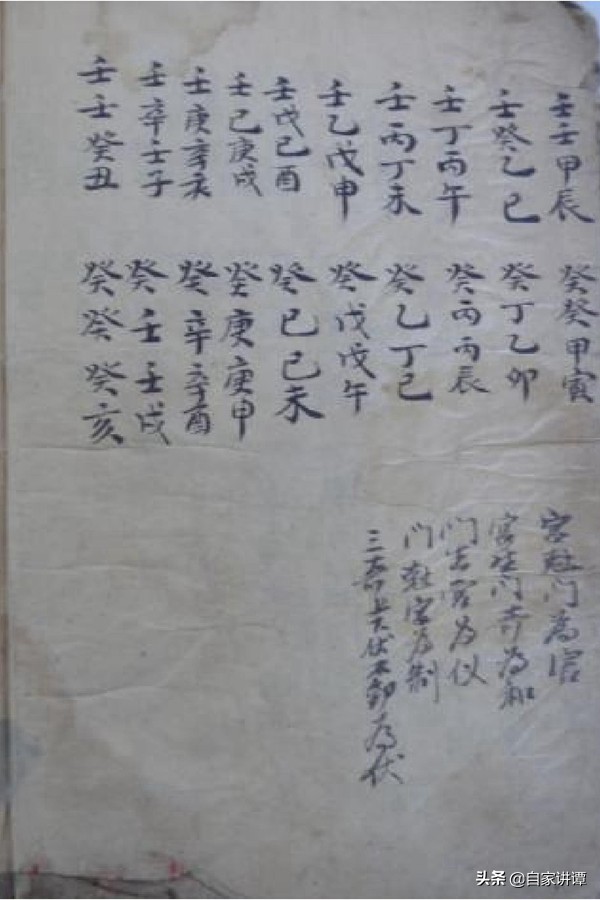 壬壬甲辰
壬癸乙巳
壬丁丙午
壬丙丁未
壬乙戊申
壬戊己酉
壬己庚戌
壬庚辛亥
壬辛壬子
壬壬癸丑
癸癸甲寅
癸丁乙卯
癸丙丙辰
癸乙丁巳
癸戊戊午
癸己己未
癸庚庚申
癸辛辛酉
癸壬壬戌
癸癸癸亥
宫尅门为
宫生门为和
门生宫为仪
门尅宫为制
三奇上六伏不为伏
头条 @自家讲谭